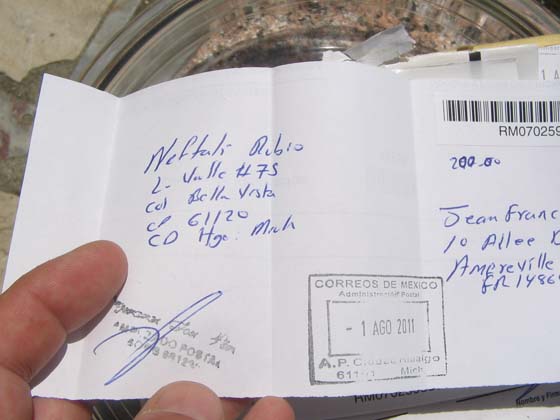 Neftali Rubio
L- Valle #75
Col Bella Vista
CP 61120
CD Hgo. Mich
POSTAL
RM070259
200.00
Jean Franc
10 Allee
Ampreville
FR 1486
CORREOS DE MEXICO
Administración Postal
- 1 AGO 2011
A.P. Ciudad Hidalgo
Mich.
Nombre y Firm